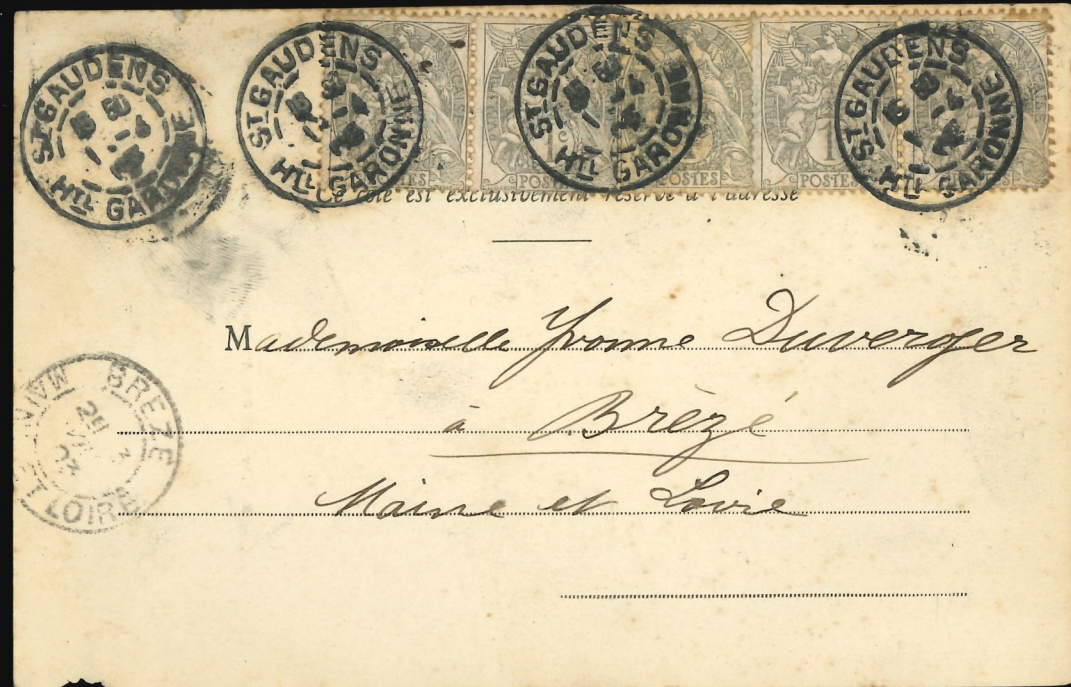 ST GAUDENS HTE GARONNE
ST GAUDENS HTE GARONNE
ST GAUDENS HTE GARONNE
ST GAUDENS HTE GARONNE
POSTES
POSTES
POSTES
Ce côté est exclusivement réservé à l'adresse
Mademoiselle Yvonne Duverger
à Brézé
Maine et Loire
BREZE
ET LOIRE